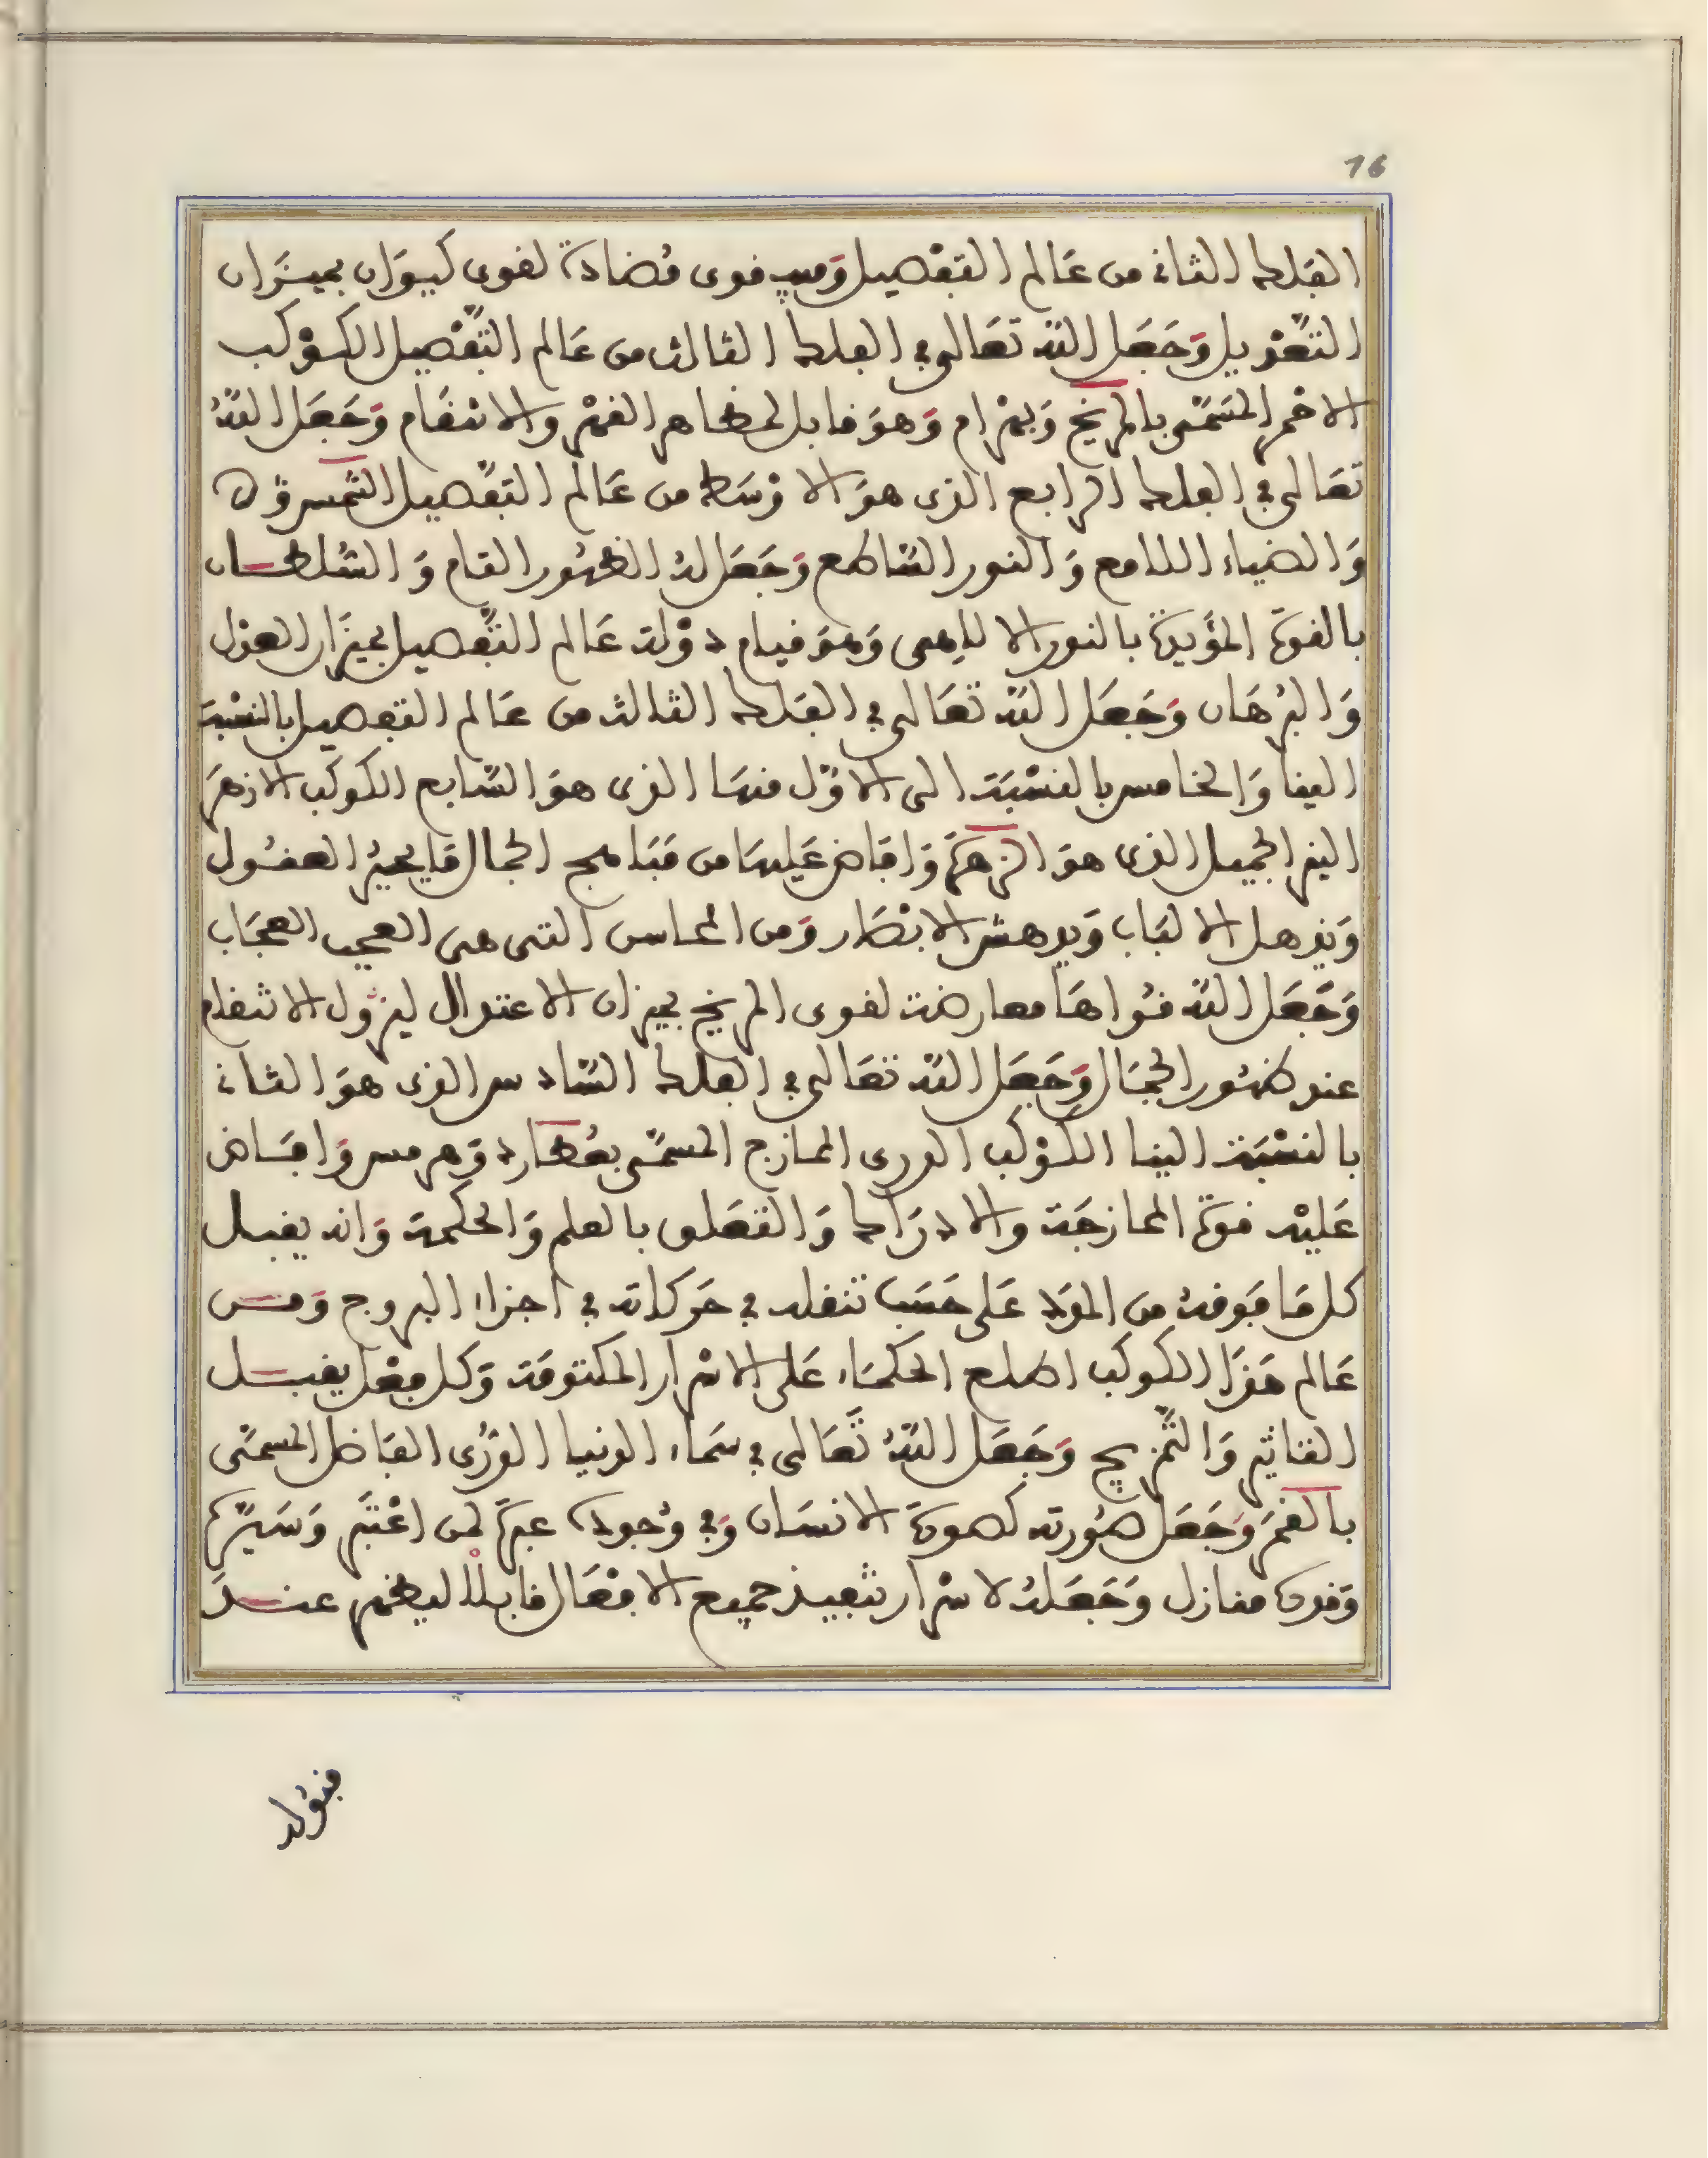 16
الفلك الثانى من عَالم التفْصيل وَفيه قوى مُضادة لقوى كيوَان بميزَان
التَّعْديل وَجَعَل اللّه تعَالى في الفلك الثالث من عَالم التَّفْصيل الكوْكب
الاحْمر المسَمّى بالمريخ وَبهْرام وَهوَ قابل لمظاهر القهْر والانتقَام وَجَعَل اللّهُ
تعَالى في الفلك الرابع الذى هوَ الاوْسَط من عَالم التفْصيل الشمس
وَالضياء اللامع وَالنور السَّاطع وَجَعَل لهُ الظهُور التام وَالسُلطان
بالقوة المؤَيدة بالنور الالاهى وَهوَ قيام دوْلة عَالم التَّفْصيل بميزَان العدل
وَالبرْهَان وَجَعَل اللّه تعَالى في الفلك الثالث من عَالم التفصيل بالنسْبَة
الينا وَالخامس بالنسْبَة الى الاوّل منها الذى هوَ السَّابع الكوكب الازهَر
النير الجميل الذى هوَ الزهرَة وَافاض عَليهَا من مَبَاهج الجمال مَا يحيرُ العقُول
وَيذهل الالبَاب وَيدهش الابْصَار وَمن المحاسن التى هى العجب العجَاب
وَجَعَل اللّه قوَاهَا معارضة لقوى المريخ بميزان الاعتدال ليزول الانتقام
عند ظهُور الجمَال وَجَعَل اللّه تعَالى في الفلك السَّادس الذى هوَ الثانى
بالنسْبَة الينا الكوْكب الدرى الممازج المسمّى بعُطارد وَهرمس وَافاض
عَليْه قوة الممازجَة والادرَاك وَالتعَلق بالعلم وَالحكمة وَانه يقبل
كل مَا فوقهُ من الموَاد عَلى حَسَب تنقله في حَركاته في اجزاء البروج وَمن
عَالم هَذَا الكوكب اطلع الحكمَاء عَلى الاسْرار المكتومَة وَكل فعْل يقبل
التاثير وَالتَّمزيج وَجَعَل اللّهُ تَّعَالى في سَماء الدنيا الدُرّى الفاضل المسمّى
بالقمَر وَجَعَل صُورته كصورَة الانسَان وَفي وُجوده عبرَة لمن اعْتبَر وَسَيّرَه
وَقدره منازل وَجَعَلهُ لاسْرار تنْفيذ جميع الافعَال قابلا ليظهر عند
فبوله